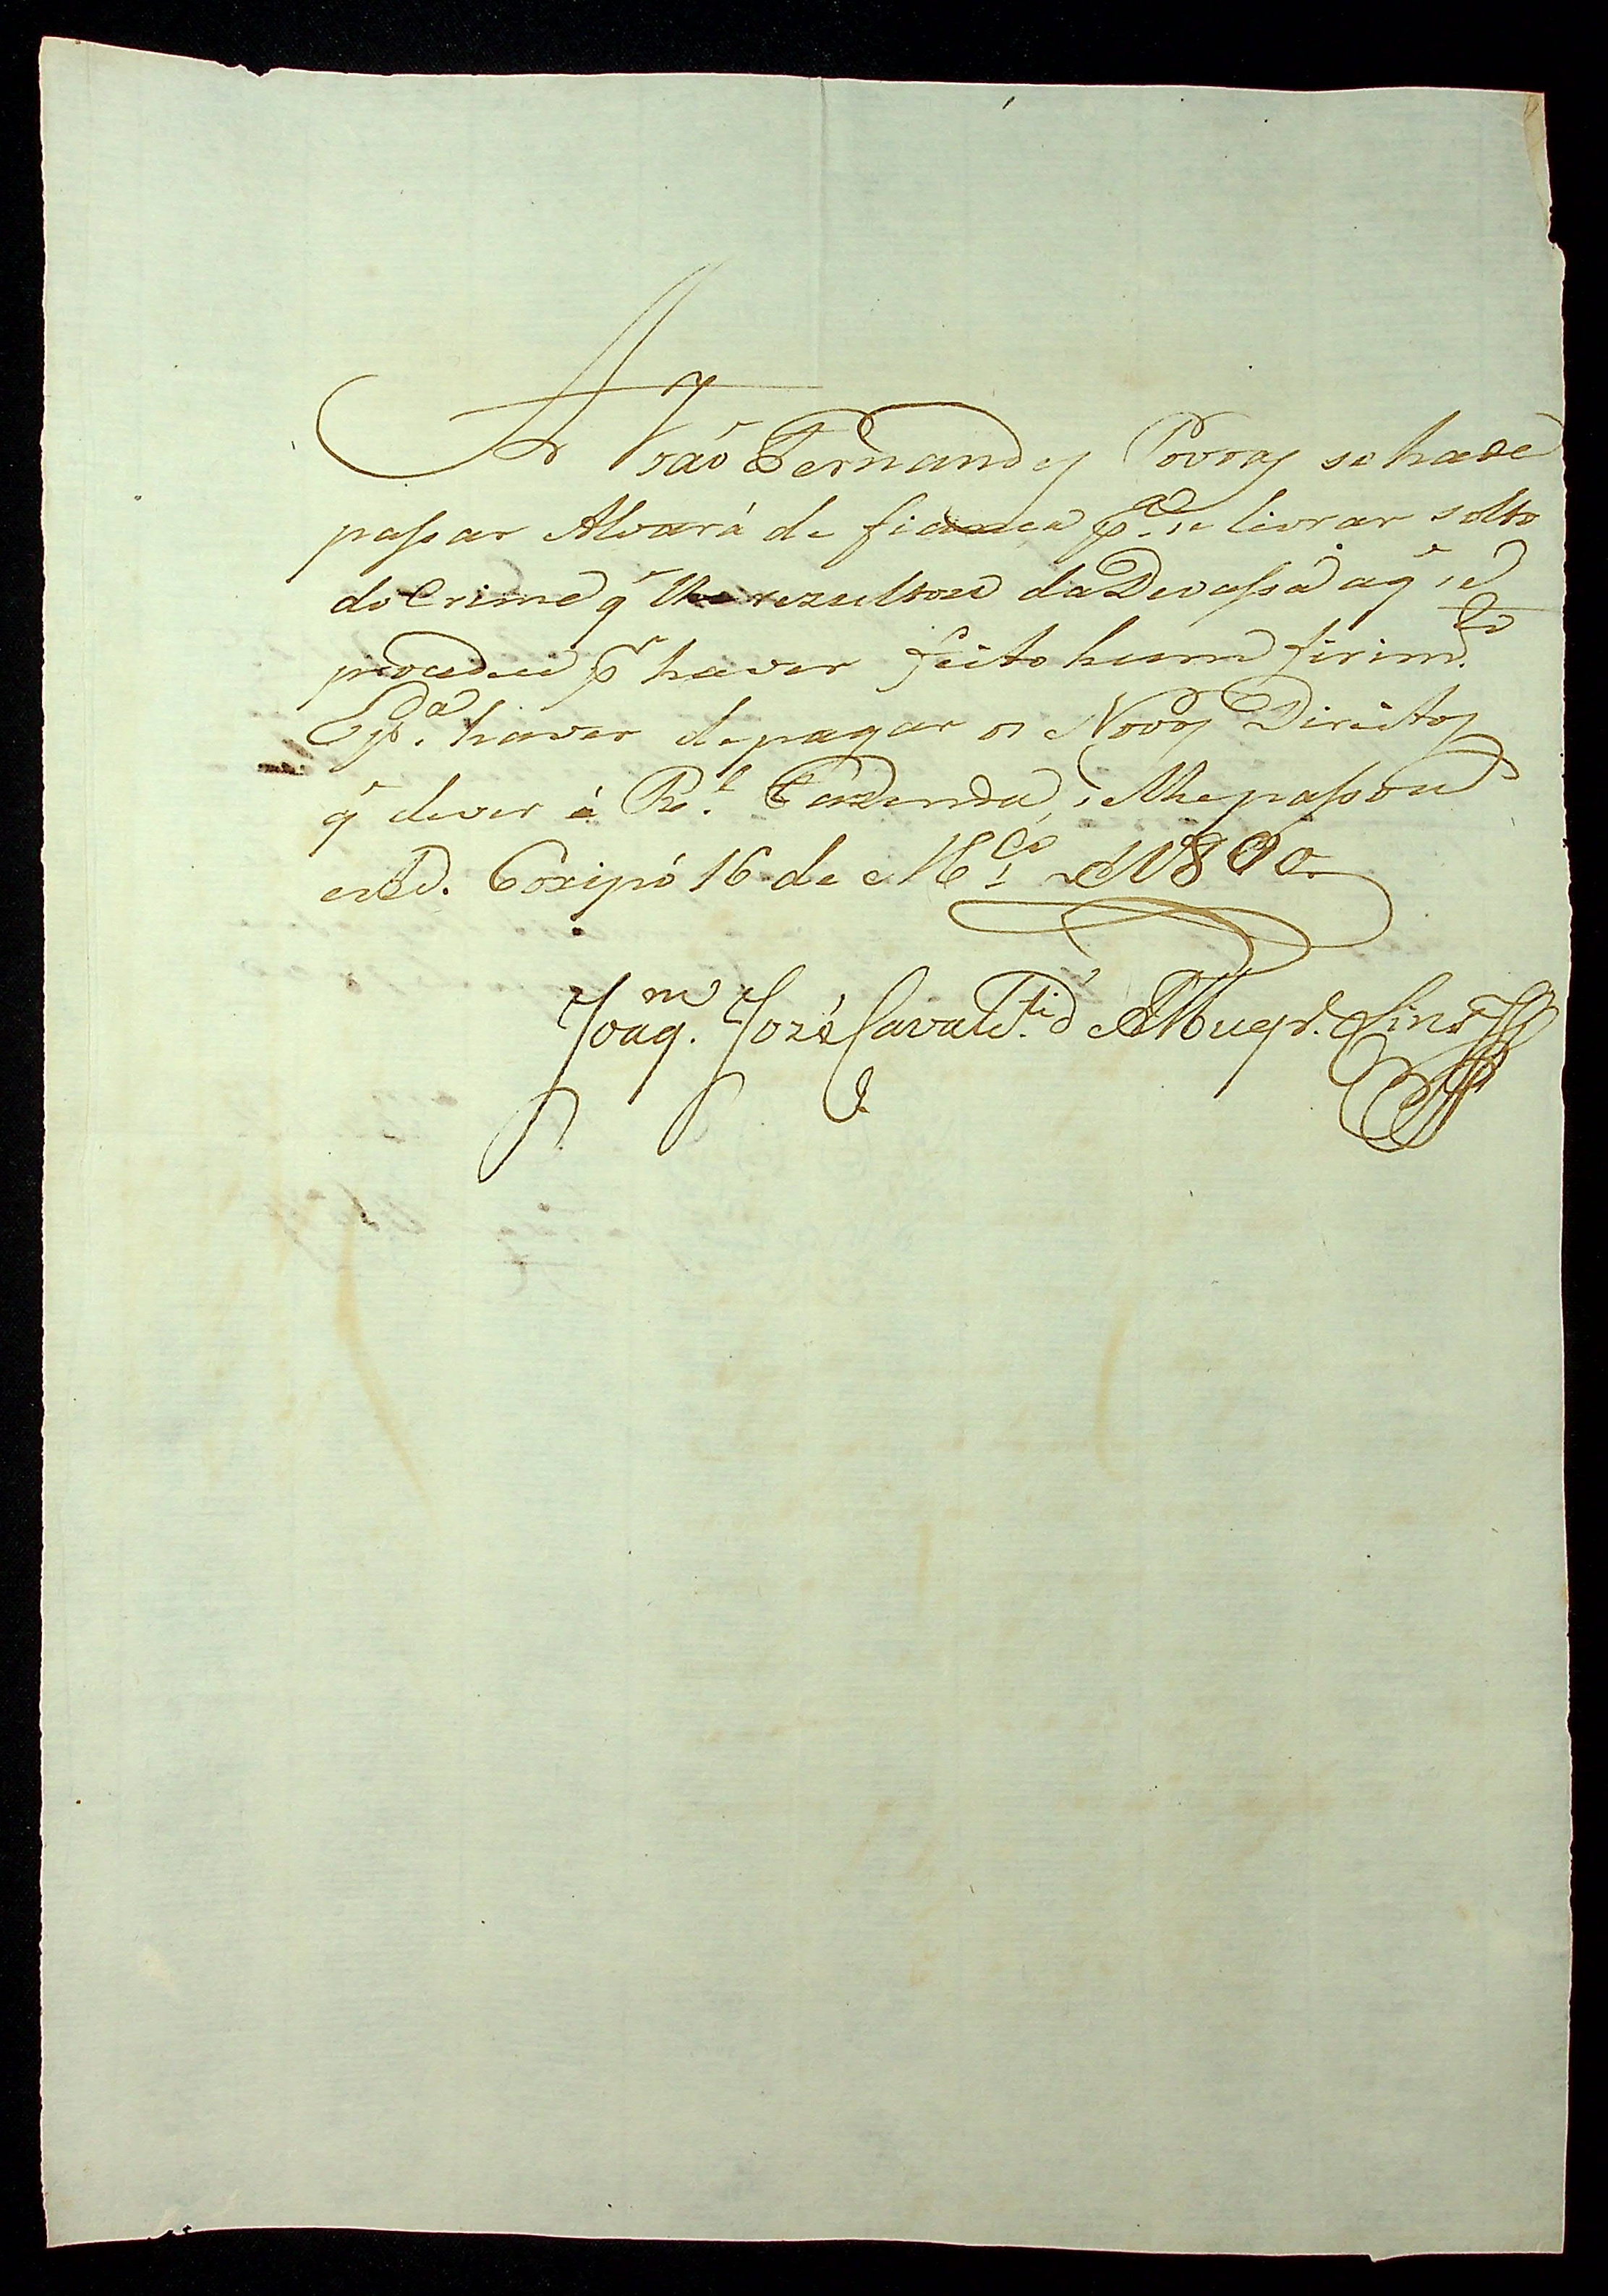 A João Fernandes Povoas se ha de
passar Alvará de fiança pª. se livrar solto
do Crime q̃ lhe rezultou da Devassa a q̃ se
procedeu pʳ haver feito hum firimᵗᵒ.
E pª. haver de pagar os Novos Direitos
q̃ dever á Rˡ. Fazenda, se lhe passou
este. Coxipó 16 de Mᶜᵒ de 1800
Joaqᵐ. José Cavalcᵗⁱ d'Albuqʳ. Lins